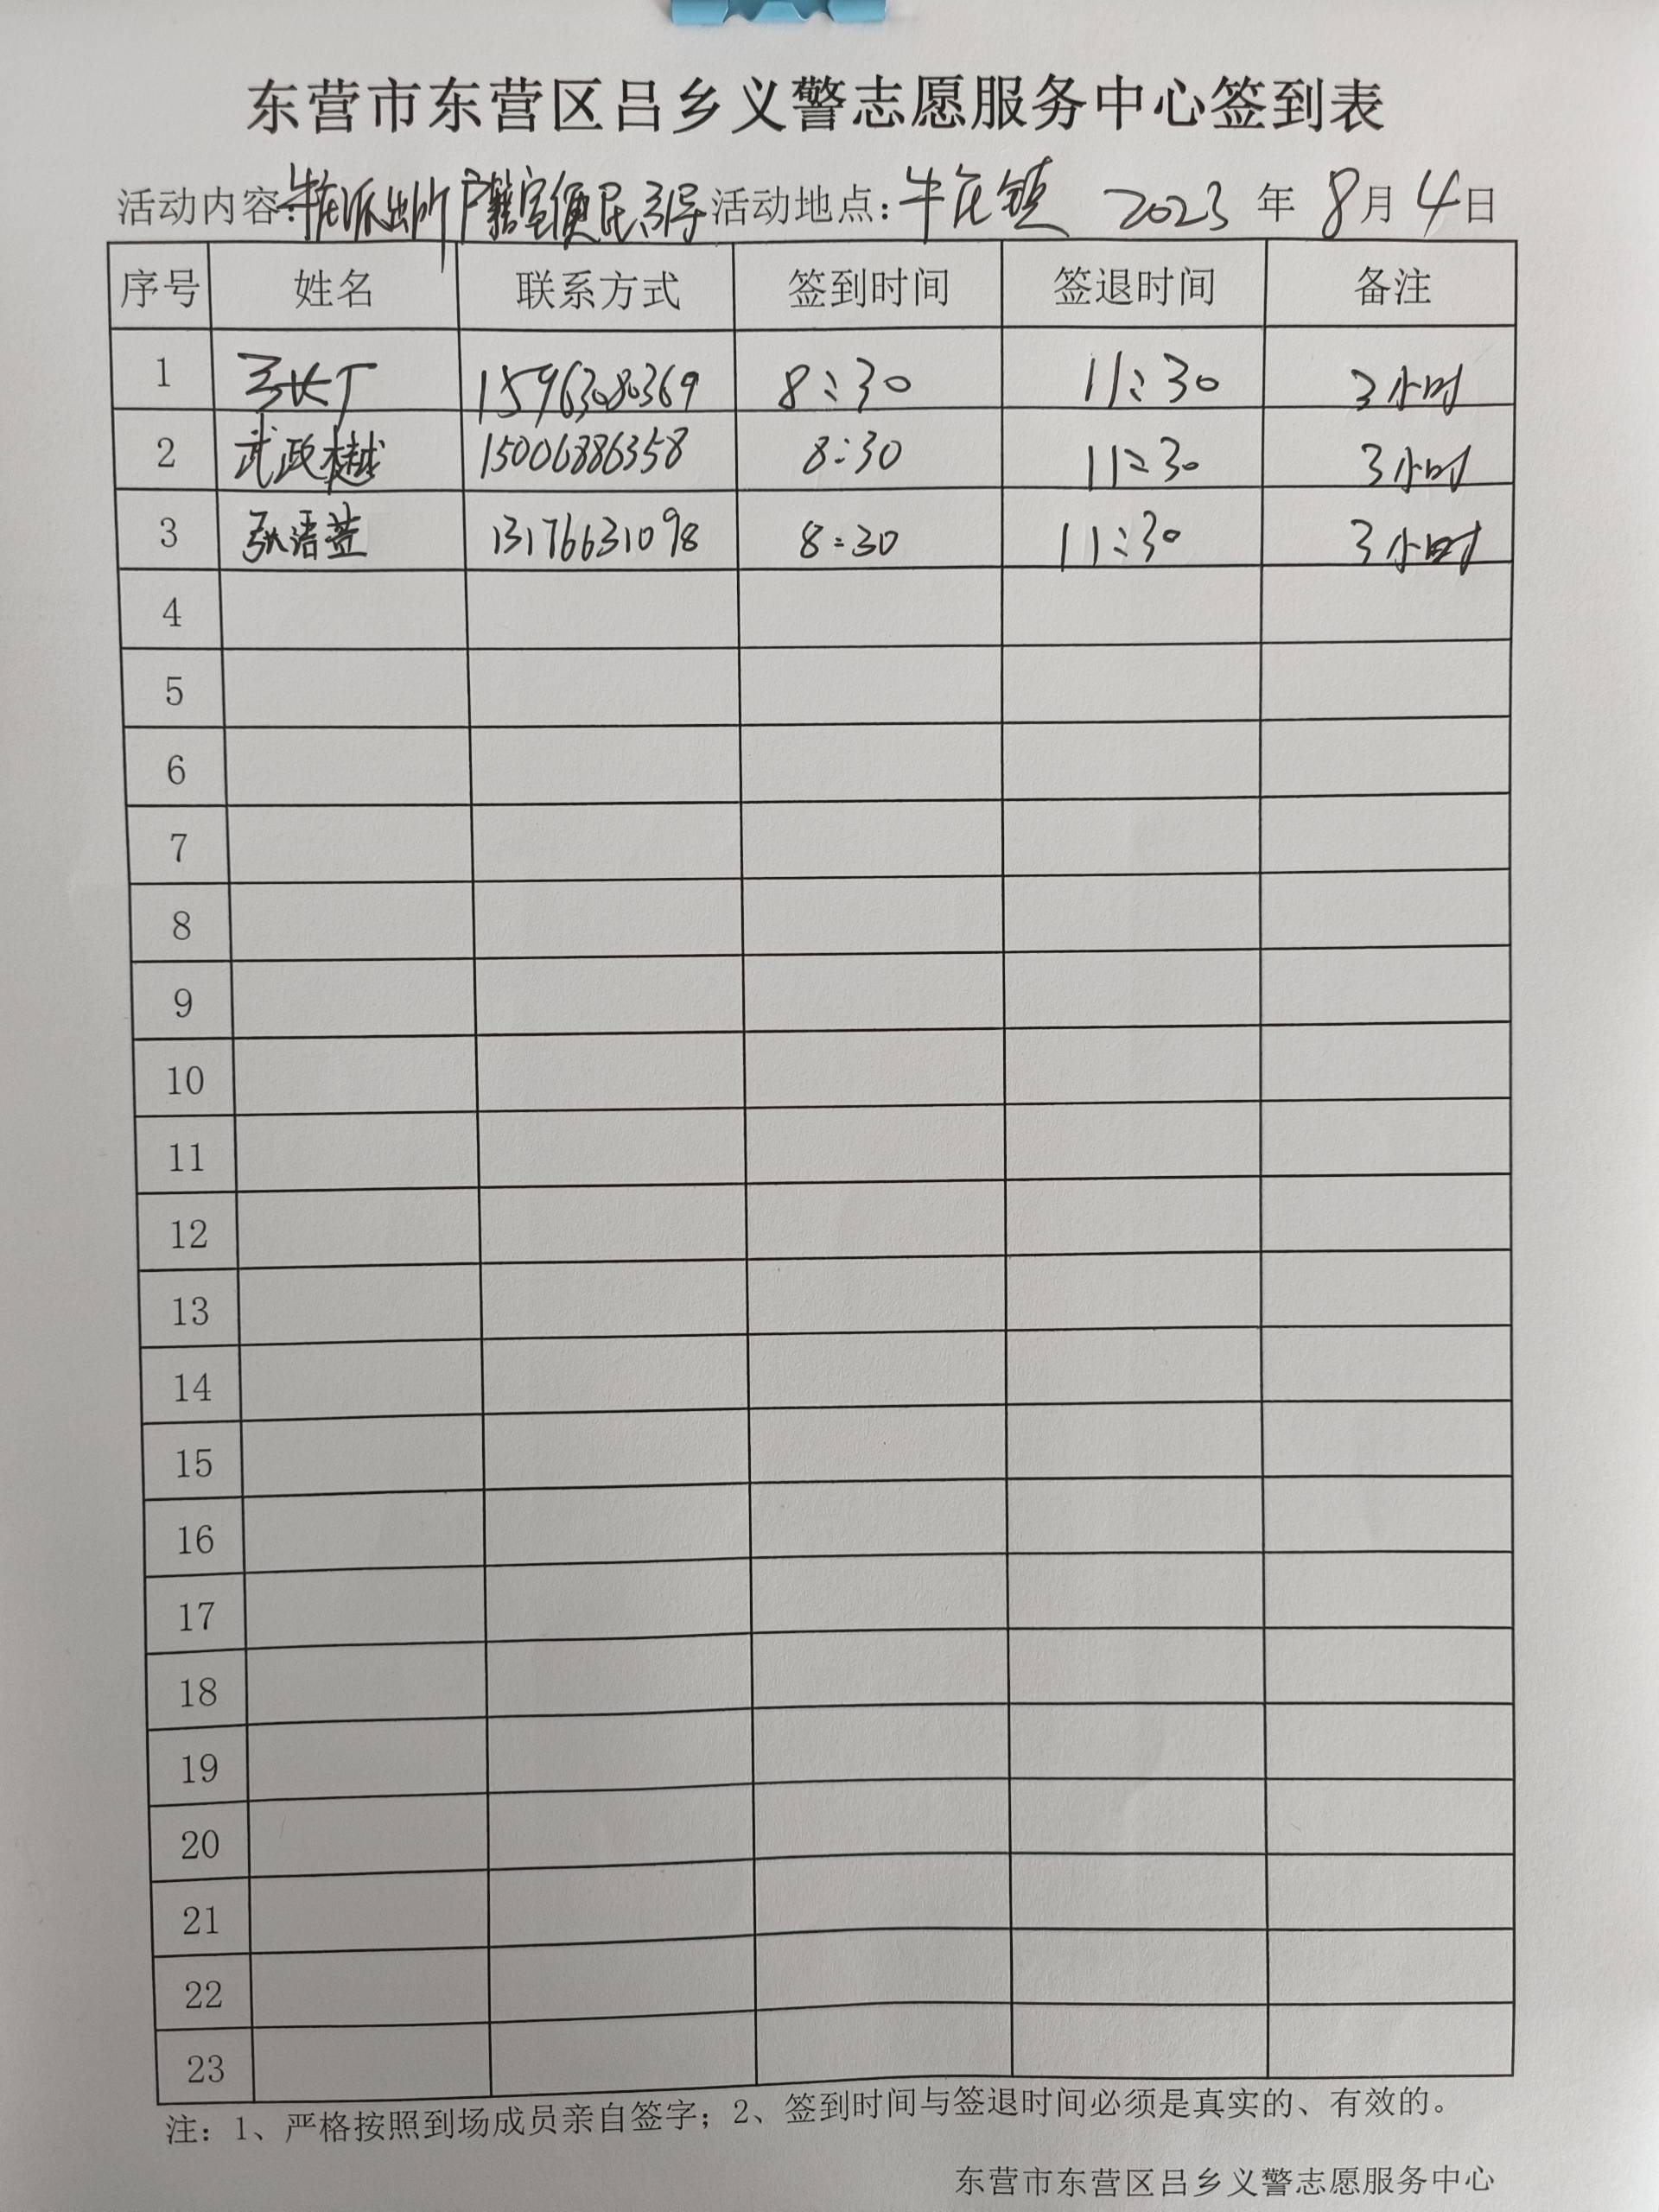 东营市东营区吕乡义警志愿服务中心签到表
活动内容:牛庄派出所户籍室便民引导 活动地点:牛庄镇 2023 年 8月4日
序号 姓名 联系方式 签到时间 签退时间 备注
1 15963080369 8:30 11:30 3小时
2 武政樾 15006886358 8:30 11:30 3小时
3 张语萱 13176631098 8:30 11:30 3小时
4
5
6
7
8
9
10
11
12
13
14
15
16
17
18
19
20
21
22
23
注:1、严格按照到场成员亲自签字;2、签到时间与签退时间必须是真实的、有效的。
东营市东营区吕乡义警志愿服务中心